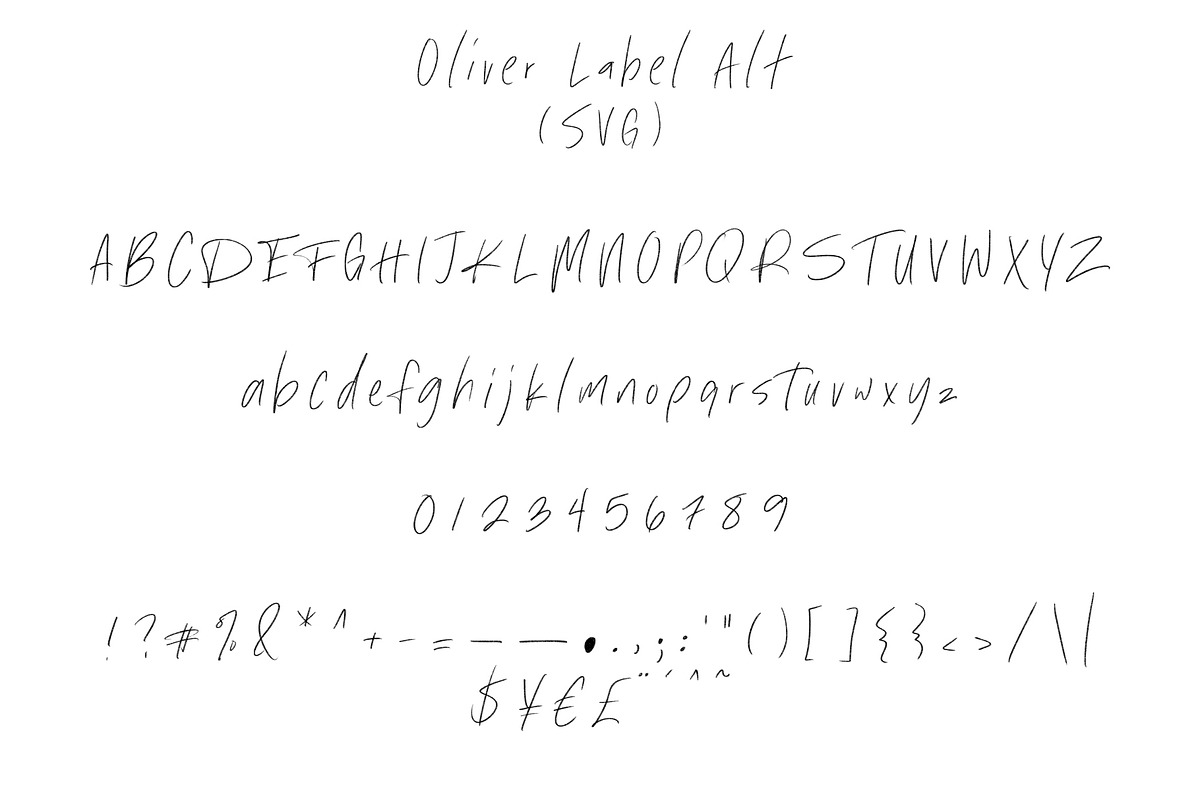 Oliver Label Alt
(SVG)
ABCDEFGHIJKLMNOPQRSTUVWXYZ
abcdefghijklmnopqrstuvwxyz
0123456789
!?#%&*^+-=–—•.,;:'"()[]{}<>/\|
$¥€£¨´^~